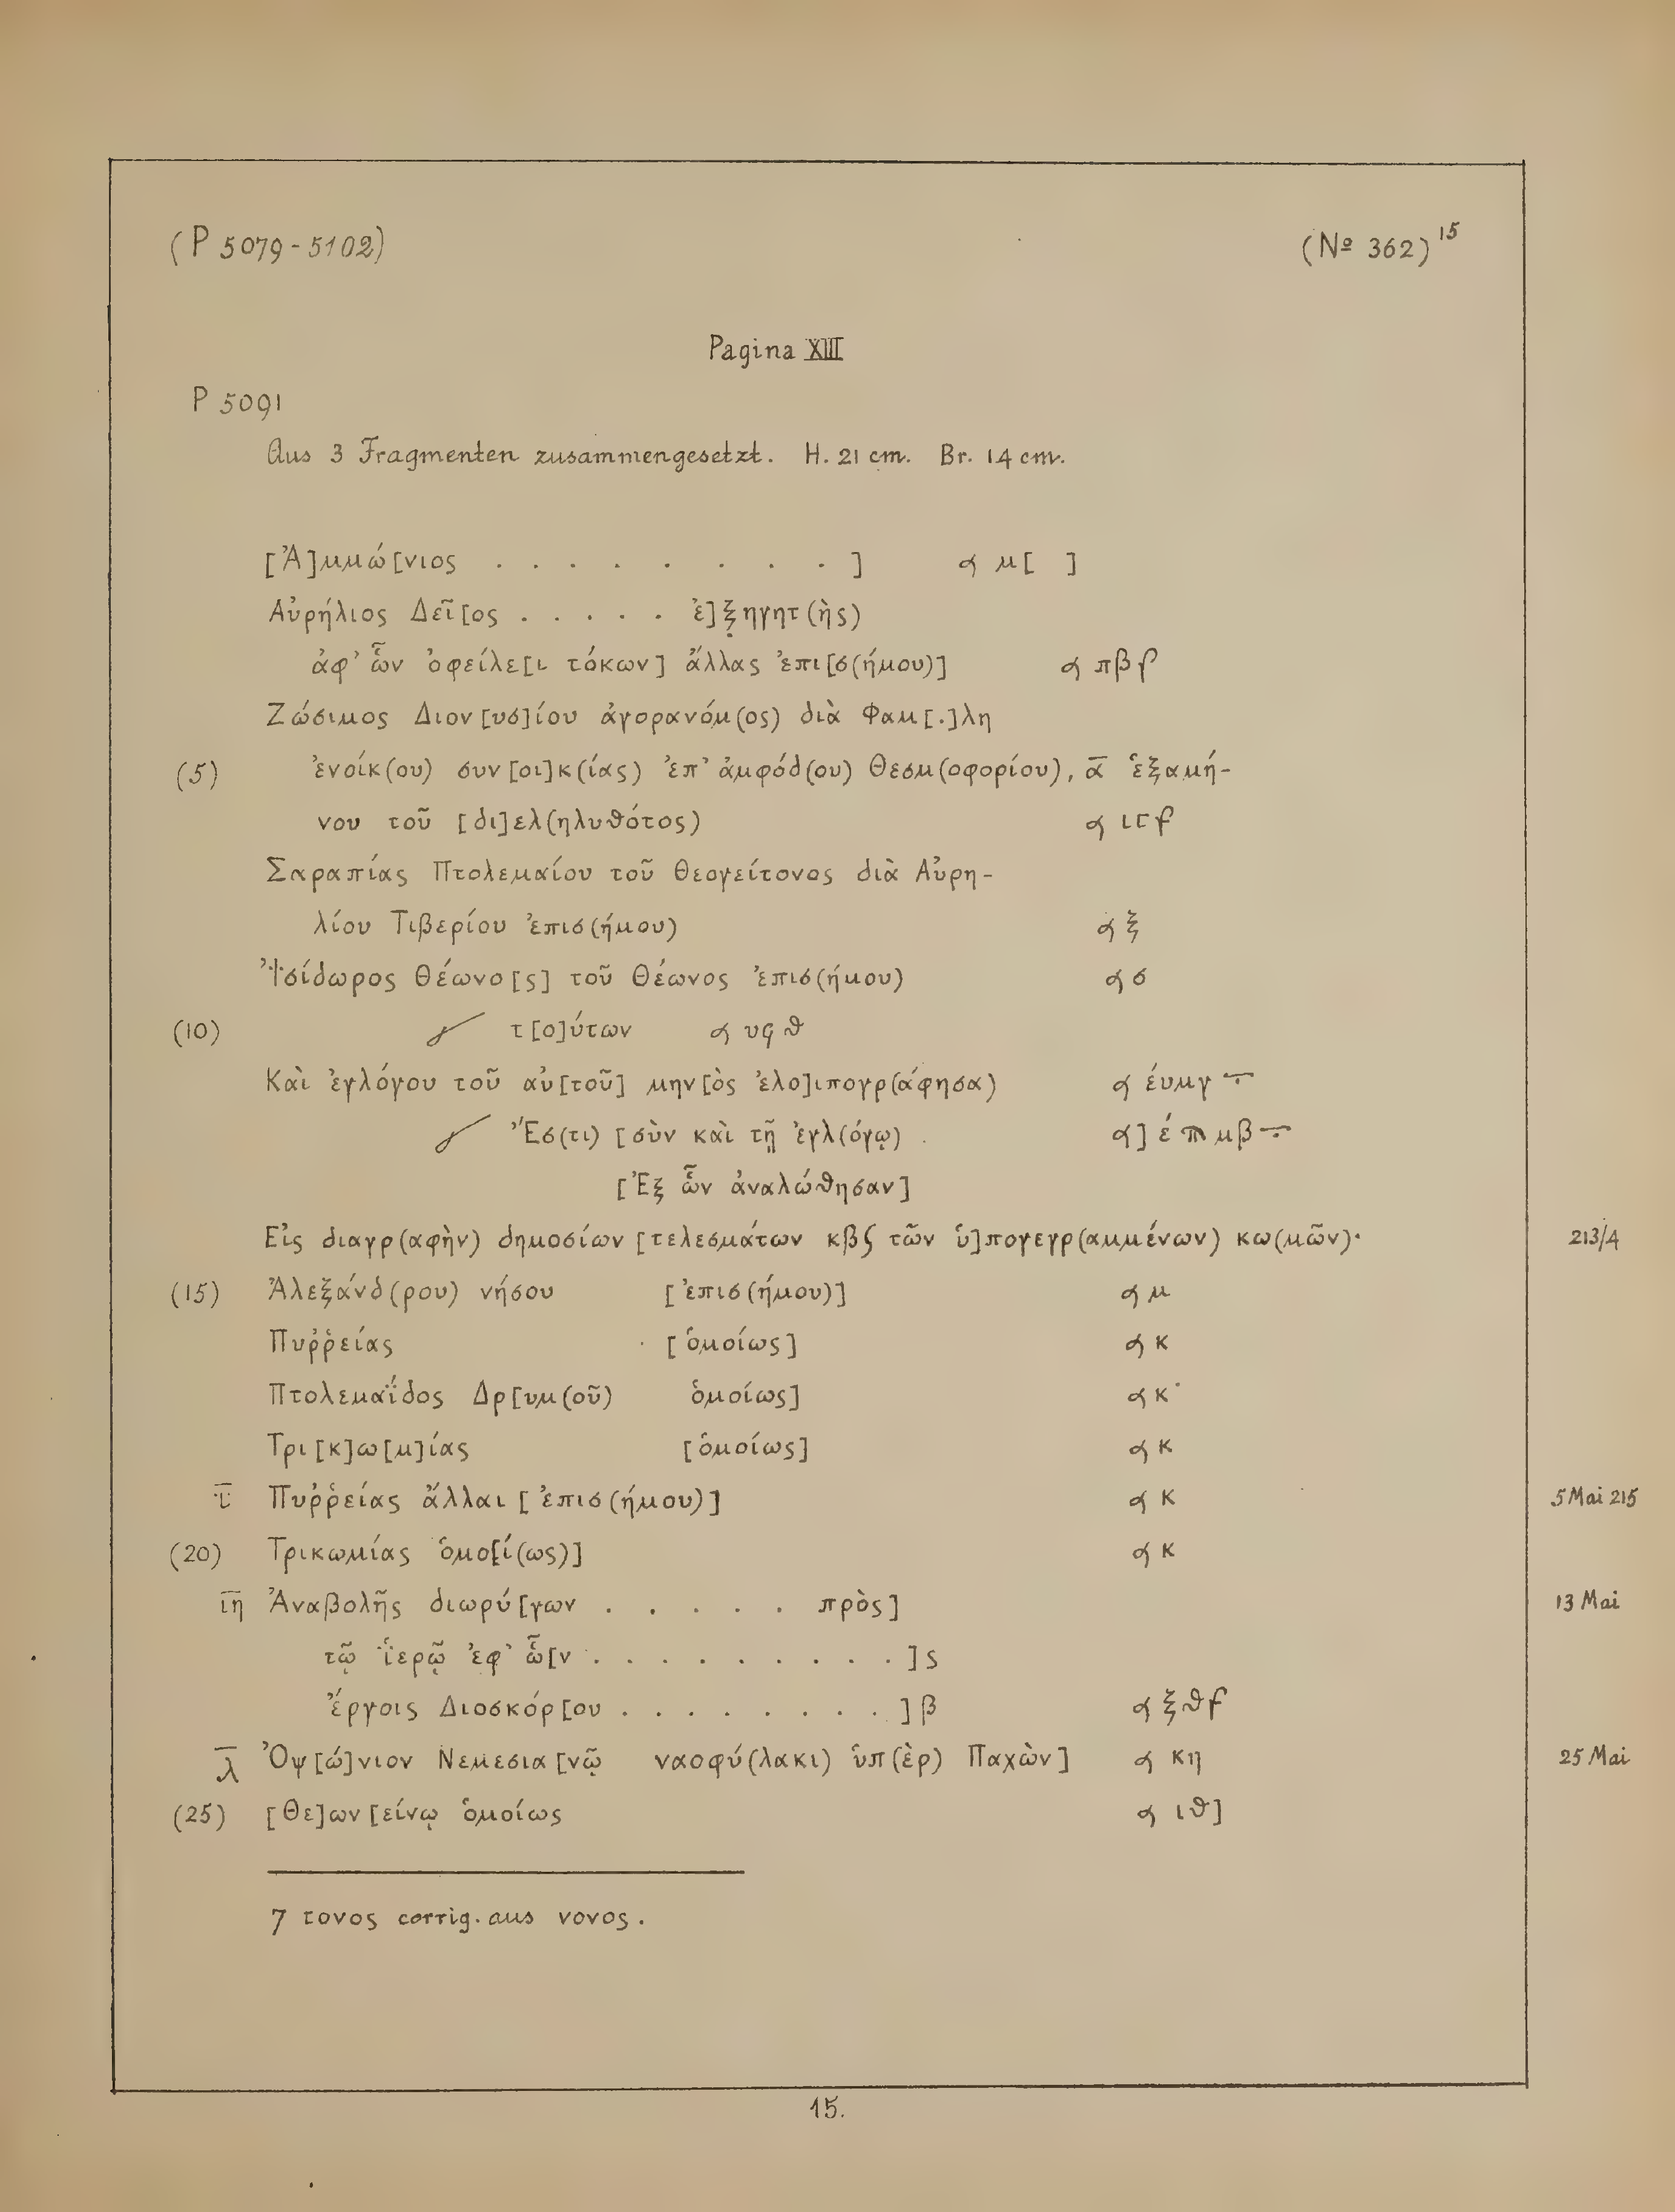 (P 5079-5102) (Nº 362) 15
Pagina XIII
P 5091
Aus 3 Fragmenten zusammengesetzt. H. 21 cm. Br. 14 cm.
[Ἀ]μμώ[νιος . . . . . . . . .] 𐅻 μ[ ]
Αὐρήλιος Δεῖ[ος . . . . . ἐ]ξ̣ηγητ(ὴς)
ἀφ' ὧν ὀφείλε[ι τόκων] ἄλλας ἐπι[σ(ήμου)] 𐅻 πβ𐅵
Ζώσιμος Διον[υσ]ίου ἀγορανόμ(ος) διὰ Φαμ[.]λη
(5) ἐνοίκ(ου) συν[οι]κ(ίας) ἐπ' ἀμφόδ(ου) Θεσμ(οφορίου), α̅ ἑξαμή-
νου τοῦ [δι]ελ(ηλυθότος) 𐅻 ιϛ𐅵
Σαραπίας Πτολεμαίου τοῦ Θεογείτονος διὰ Αὐρη-
λίου Τιβερίου ἐπισ(ήμου) 𐅻 ξ
Ἰσίδωρος Θέωνο[ς] τοῦ Θέωνος ἐπισ(ήμου) 𐅻 σ
(10) τ[ο]ύτων 𐅻 υϙθ
Καὶ ἐγλόγου τοῦ αὐ[τοῦ] μην[ὸς ἐλο]ιπογρ(άφησα) 𐅻 έυμγ
Ἔσ(τι) [σὺν καὶ τῇ ἐγλ(όγῳ) 𐅻] έϡμβ
[Ἐξ ὧν ἀναλώθησαν]
Εἰς διαγρ(αφὴν) δημοσίων [τελεσμάτων κβϛ τῶν ὑ]πογεγρ(αμμένων) κω(μῶν)· 213/4
(15) Ἀλεξάνδ(ρου) νήσου [ἐπισ(ήμου)] 𐅻 μ
Πυῤῥείας [ὁμοίως] 𐅻 κ
Πτολεμαΐδος Δρ[υμ(οῦ) ὁμοίως] 𐅻 κ
Τρι[κ]ω[μ]ίας [ὁμοίως] 𐅻 κ
ι̅ Πυῤῥείας ἄλλαι [ἐπισ(ήμου)] 𐅻 κ 5 Mai 215
(20) Τρικωμίας ὁμο[ί(ως)] 𐅻 κ
ι̅η̅ Ἀναβολῆς διωρύ[γων . . . . . πρὸς] 13 Mai
τῷ ἱερῷ ἐφ' ὧ[ν . . . . . . . . .]ς
ἔργοις Διοσκόρ[ου . . . . . . . .]β 𐅻 ξθ𐅵
λ̅ Ὀψ[ώ]νιον Νεμεσια[νῷ ναοφύ(λακι) ὑπ(ὲρ) Παχὼν] 𐅻 κη 25 Mai
(25) [Θε]ων[είνῳ ὁμοίως 𐅻 ιθ]
7 τονος corrig. aus νονος.
15.